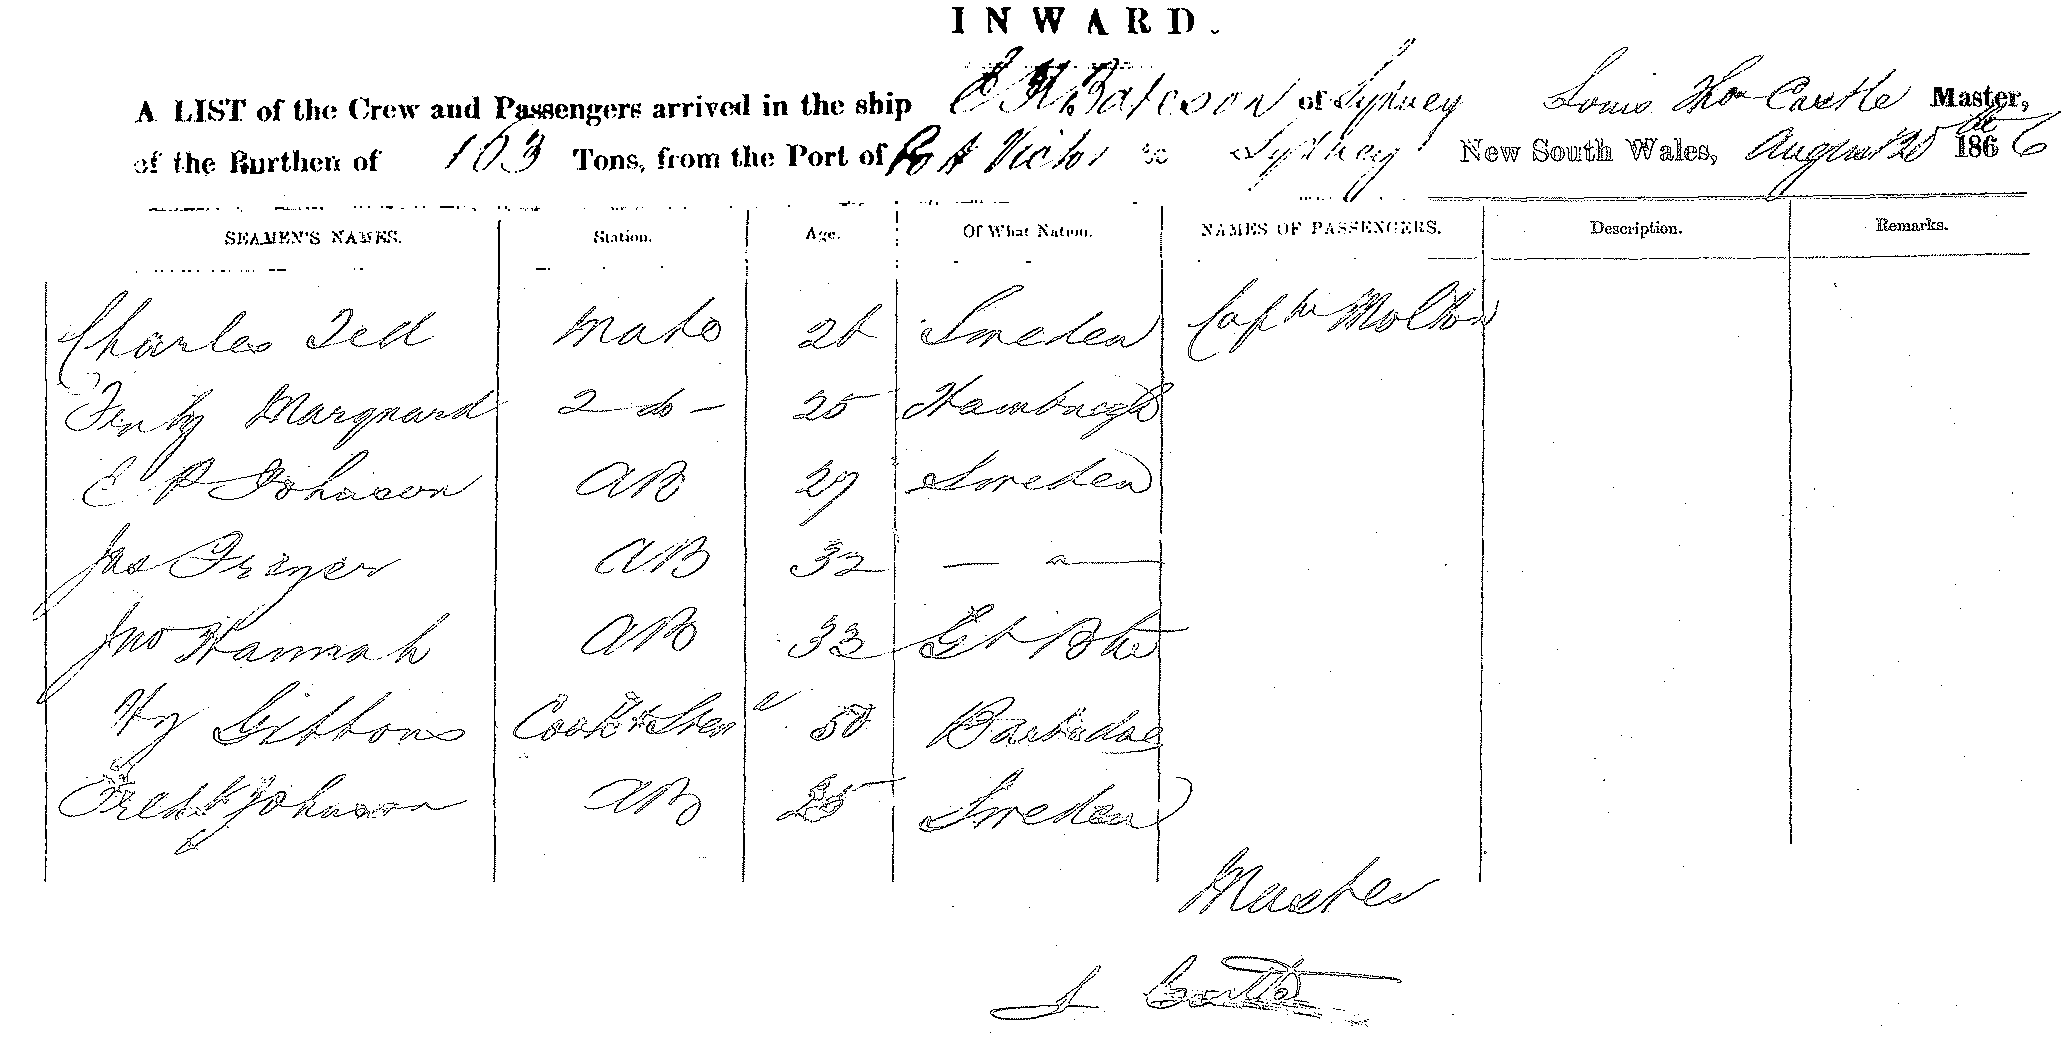 INWARD.
A LIST of the Crew and Passengers arrived in the ship E H Bateson of Sydney Louis Thos Castle Master,
of the Burthen of 103 Tons, from the Port of Port Victor to Sydney New South Wales, August 20th 1866
SEAMEN'S NAMES. Station. Age. Of What Nation. NAMES OF PASSENGERS. Description. Remarks.
Charles Tell Mate 26 Sweden Captn Molton
Marquard 2 do - 25 Hamburgh
E P Johnson AB 27 Sweden
Jas Freyer AB 32 — " —
Jno Hannah AB 33 Gt Btn
Hy Gibbons Cook & Stew 50 Barbadoes
Fredk Johnson AB 25 Sweden
Master
L Castle